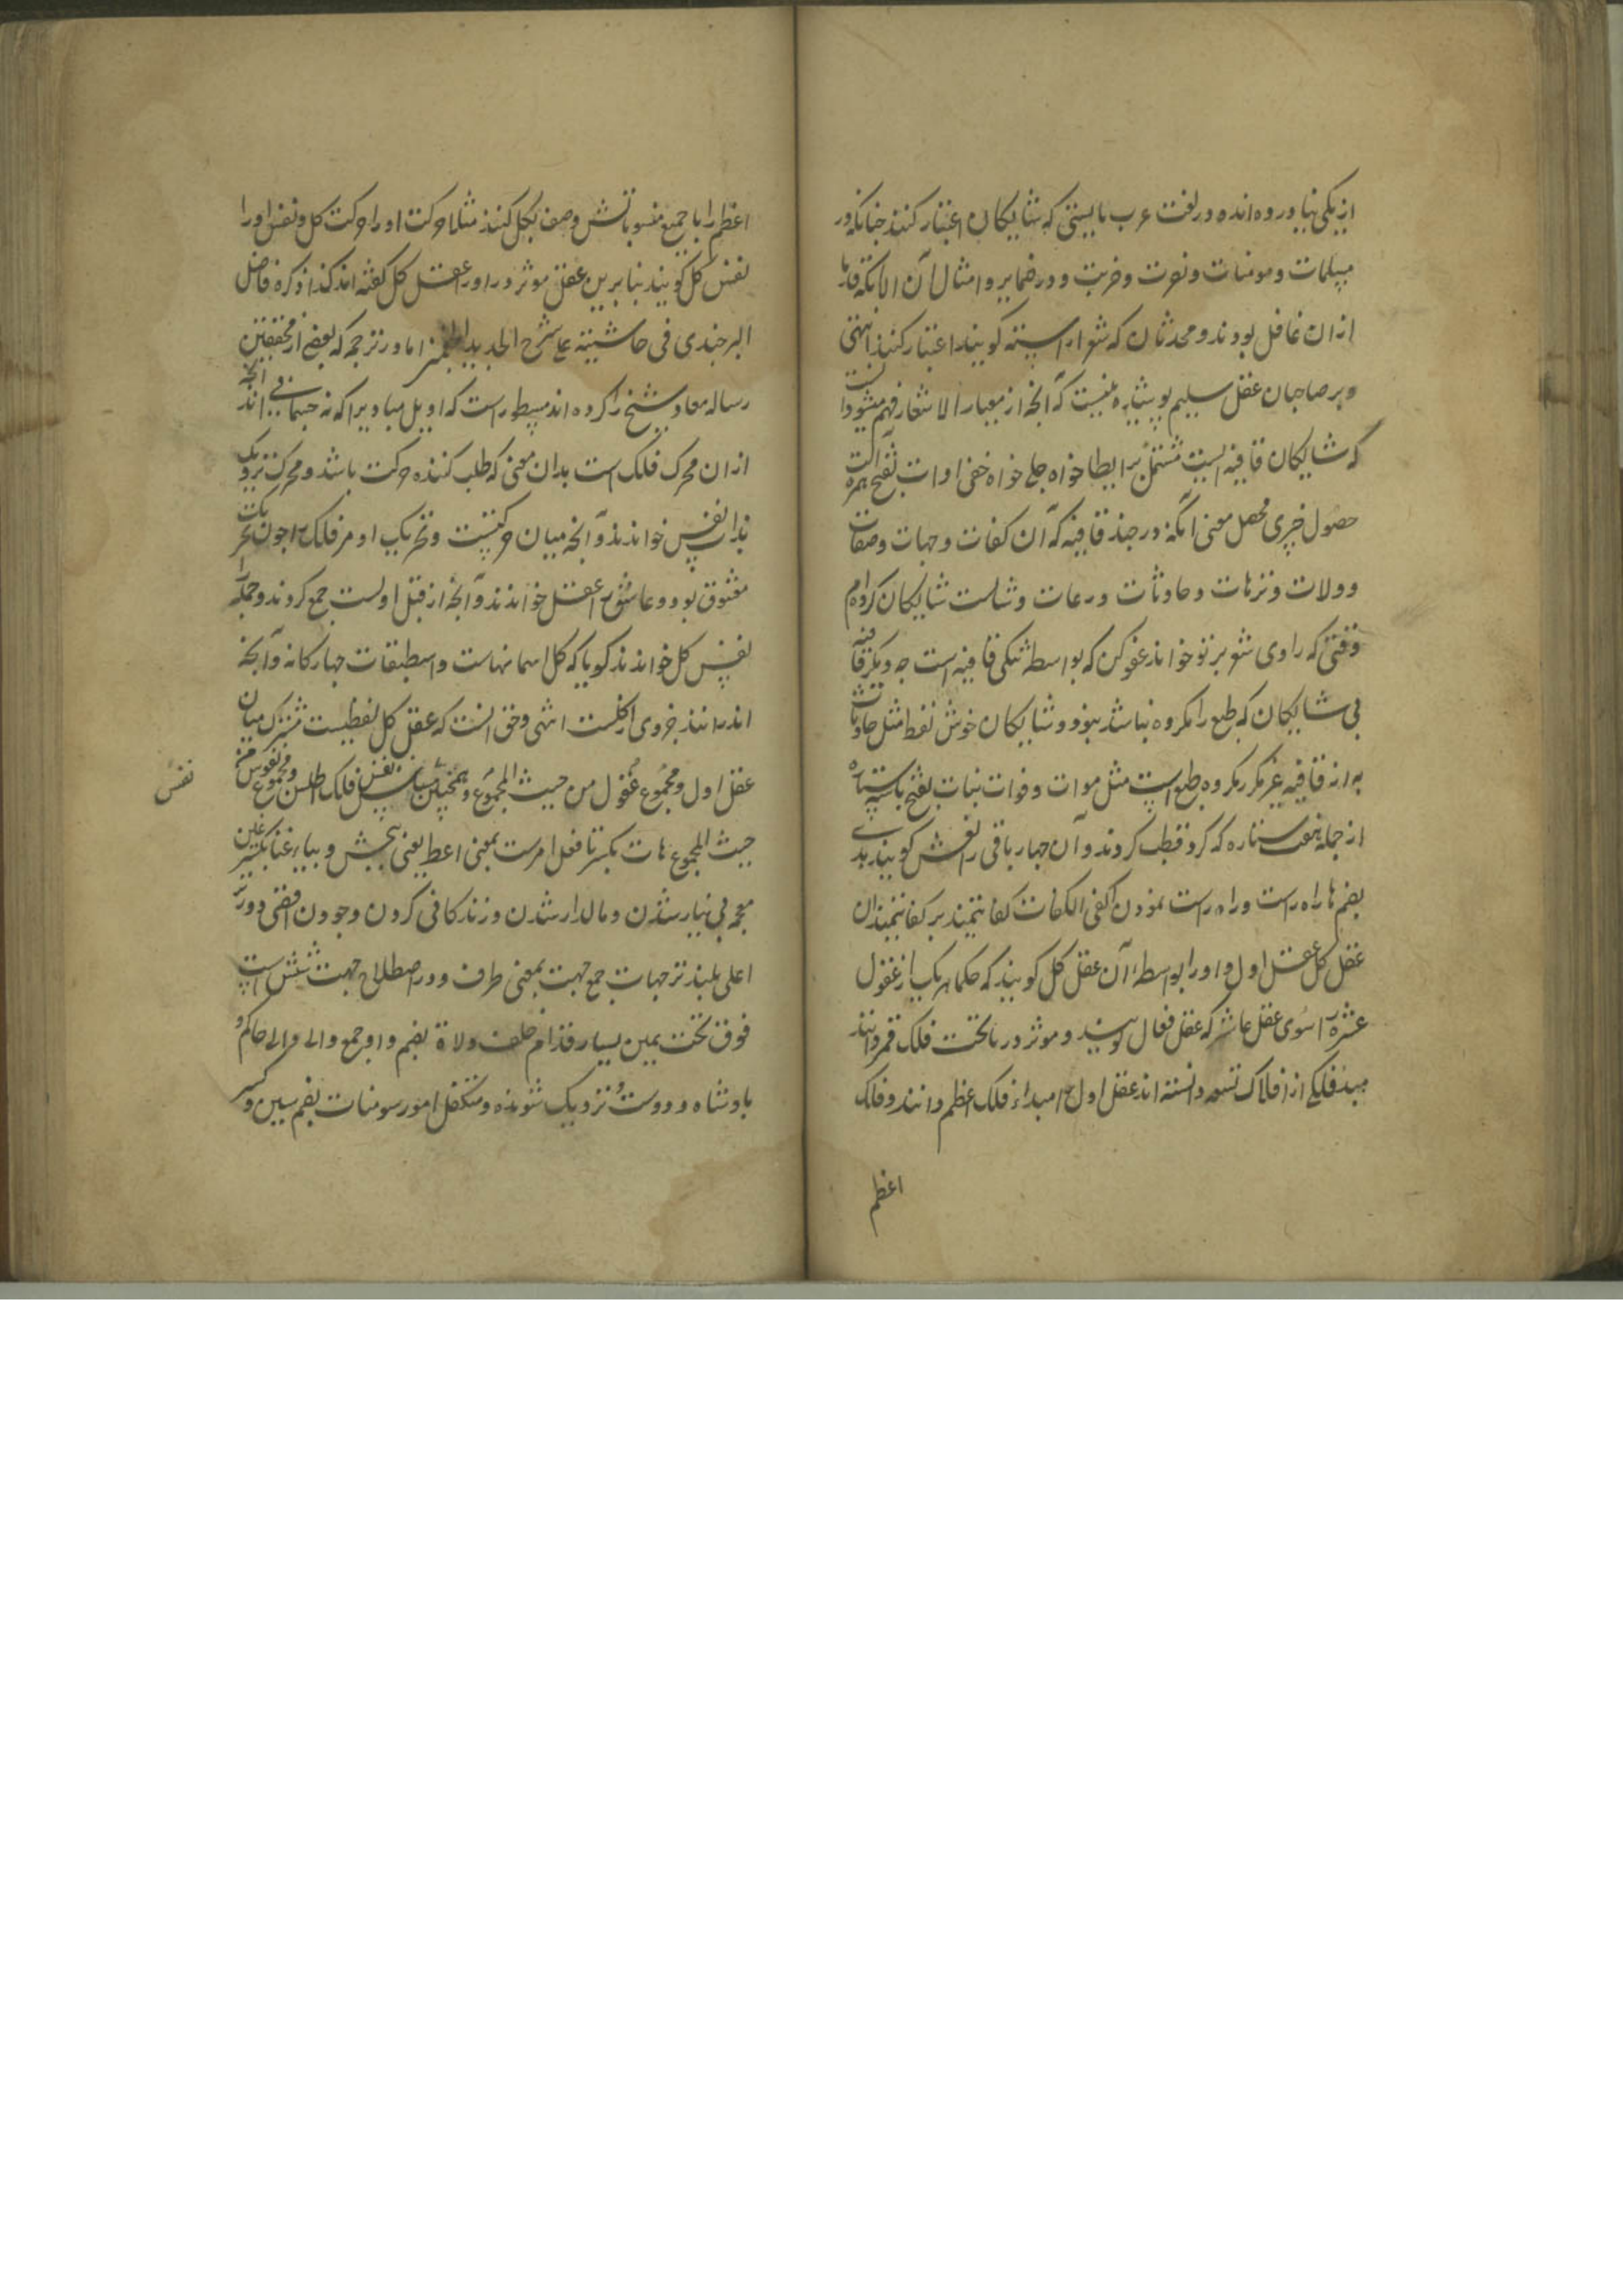 از یکی نیاورده‌اند و در لغت عرب بایستی که شایکان اعتبار کنند چنانکه در
مسلمات و مومنات و نصرت و ضربت و در ضمایر و امثال آن الا آنکه قدما
از ان غافل بودند و محدثان که شعر اراسته کویند اعتبار کنند انتهی
و بر صاحبان عقل سلیم پوشیده نیست که آنچه از معیار الاشعار فهم میشود انست
که شایکان قافیه ایست مشتمل بر ایطا خواه جلی خواه خفی ادات بفتح همزه الت
حصول چیزی محصل معنی آنکه در چند قافیه که آن کفات و جهات و صفات
و ولات و نزهات و حادثات و رعات و شالست شایکان کرده‌ام
وقتی که راوی شعر بر تو خواند عفو کن که بواسطه تنکی قافیه است چه دیکر قافیه
بی شایکان که طبع را مکروه نباشد نبود و شایکان خوش لفظ مثل حادثات
به از قافیه غیر مکرر مکروه طبع است مثل موات و فوات بنات بفتح با سه ستاره
از جمله هفت ستاره که کرد قطب کردند و آن چهار باقی را نعش کویند هدی
بضم ها راه راست و راه راست نمودن اکفی الکفات کفایتمندتر کفایتمندان
عقل کل عقل اول و او را بواسطه آن عقل کل کویند که حکما هر یک از عقول
عشره را سوی عقل عاشر که عقل فعال کویند و موثر در ما تحت فلک قمر دانند
مبدء فلکی از افلاک تسعه دانسته اند عقل اول را مبداء فلک اعظم دانند و فلک
اعظم
اعظم را با جمیع منسوباتش وصف بکل کنند مثلا حرکت او را حرکت کل و نفس او را
نفس کل کویند بنابرین عقل موثر در او را عقل کل کفته اند کذا ذکره فاضل
البرجندی فی حاشیته علی شرح الجدید اما در ترجمه که بعضی از محققین
رساله معاد شیخ را کرده اند مسطور است که اوایل مبادیرا که نه جسمانی اند آنچه
از ان محرک فلک است بدان معنی که طلب کننده حرکت باشد و محرک نزدیک
بدان نفس خواندند و آنچه میان حرکتست و تحریک او مر فلک را چون تحریک
معشوق بود و عاشق را عقل خواندند و آنچه از قبل اولست جمع کردند و جمله را
نفس کل خواندند کویا که کل اسمانهاست و اسطقسات چهارکانه و آنچه
اندرانند جزوی از کلست انتهی و حق انست که عقل کل لفظیست مشترک میان
عقل اول و مجموع عقول من حیث المجموع و همچنین میان نفس فلک اطلس و مجموع نفوس من
حیث المجموع هات بکسر تا فعل امرست بمعنی اعط یعنی ببخش و بیار غنا بکسر غین
معجمه بی نیاز شدن و مالدار شدن و زندکانی کردن و بودن اقصی دورتر
اعلی بلندتر جهات جمع جهت بمعنی طرف و در اصطلاح جهت شش است
فوق تحت یمین یسار قدام خلف ولاة بضم واو جمع والی والی حاکم و
پادشاه و دوست و نزدیک شونده و متکفل امور سومنات بضم سین و کسر
نفس